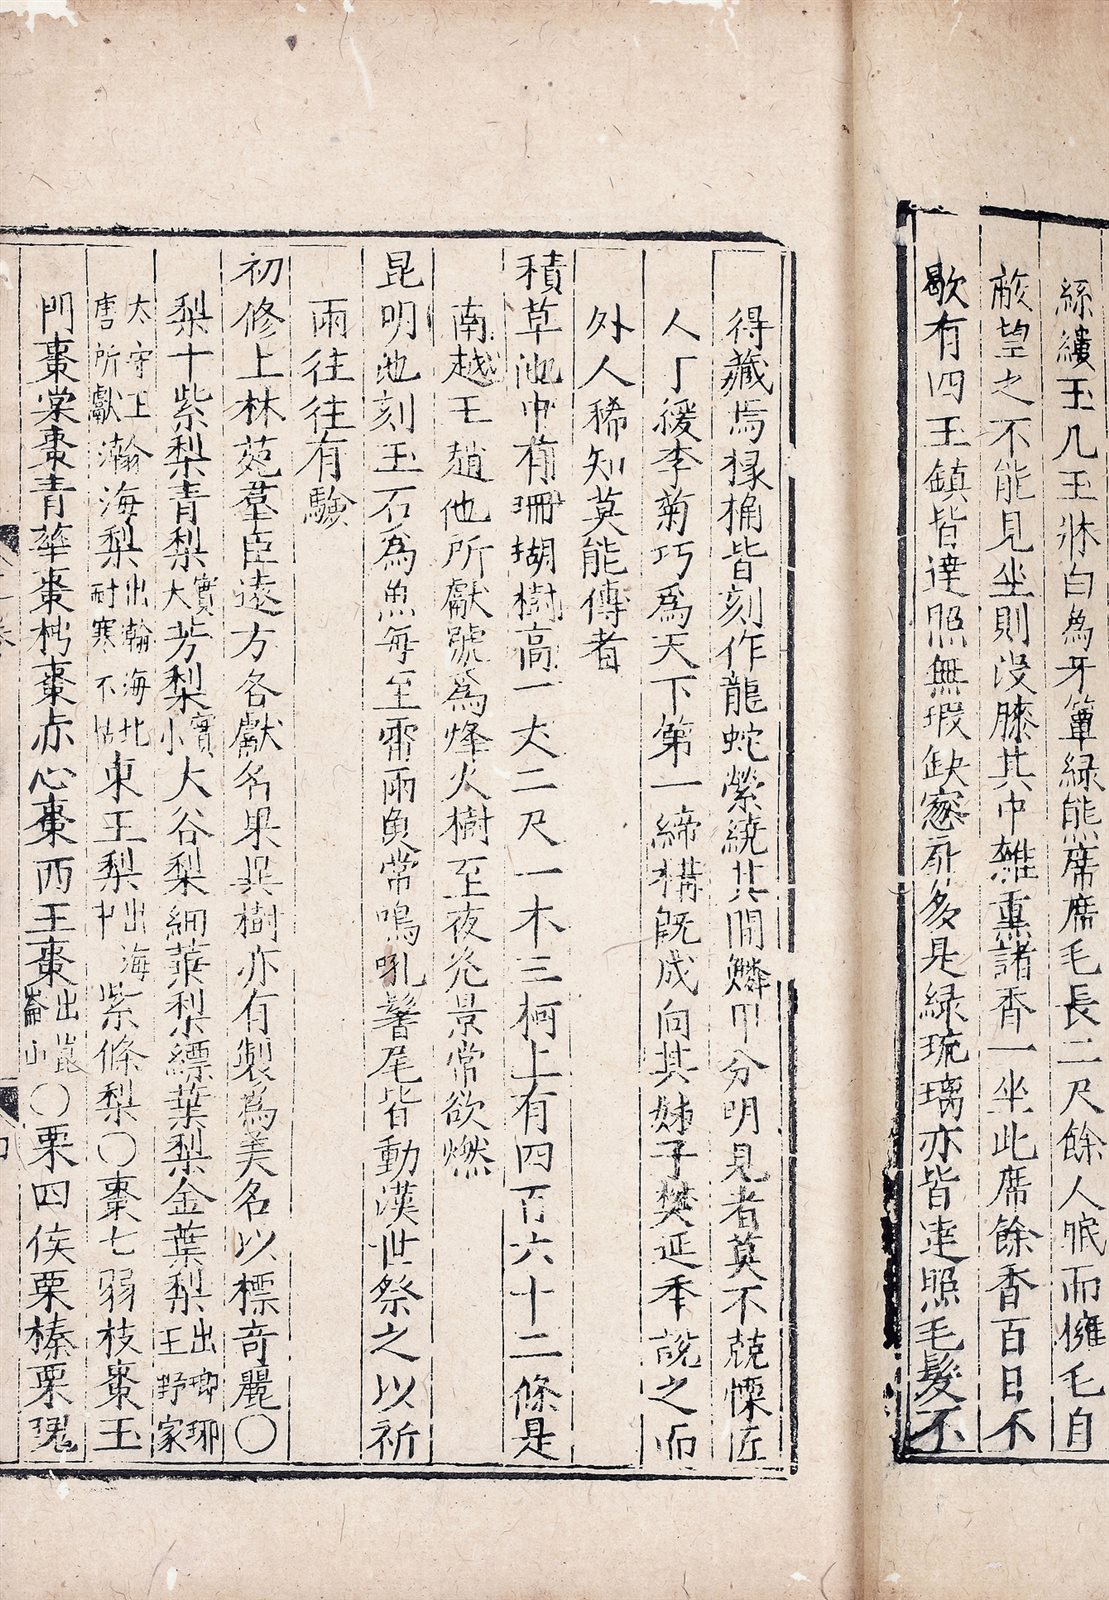 絲縷玉几玉牀白為牙簟綠熊席席毛長二尺餘人眠而擁毛自
蔽望之不能見坐則沒膝其中雜熏諸香一坐此席餘香百日不
歇有四玉鎮皆達照無瑕缺窻扉多是綠琉璃亦皆達照毛髮不
得藏焉椽桷皆刻作龍蛇縈繞其間鱗甲分明見者莫不兢慄匠
人丁緩李菊巧為天下第一締構既成向其姊子樊延年說之而
外人稀知莫能傳者
積草池中有珊瑚樹高一丈二尺一木三柯上有四百六十二條是
南越王趙他所獻號為烽火樹至夜光景常欲燃
昆明池刻玉石為魚每至雷雨魚常鳴吼鬐尾皆動漢世祭之以祈
雨往往有驗
初修上林苑羣臣遠方各獻名果異樹亦有製為美名以標奇麗○
梨十紫梨青梨實大芳梨實小大谷梨細葉梨縹葉梨金葉梨出瑯琊王野家
太守王唐所獻瀚海梨出瀚海北耐寒不枯東王梨出海中紫條梨○棗七弱枝棗玉
門棗棠棗青華棗梬棗赤心棗西王棗出崑崙山○栗四侯栗榛栗瑰